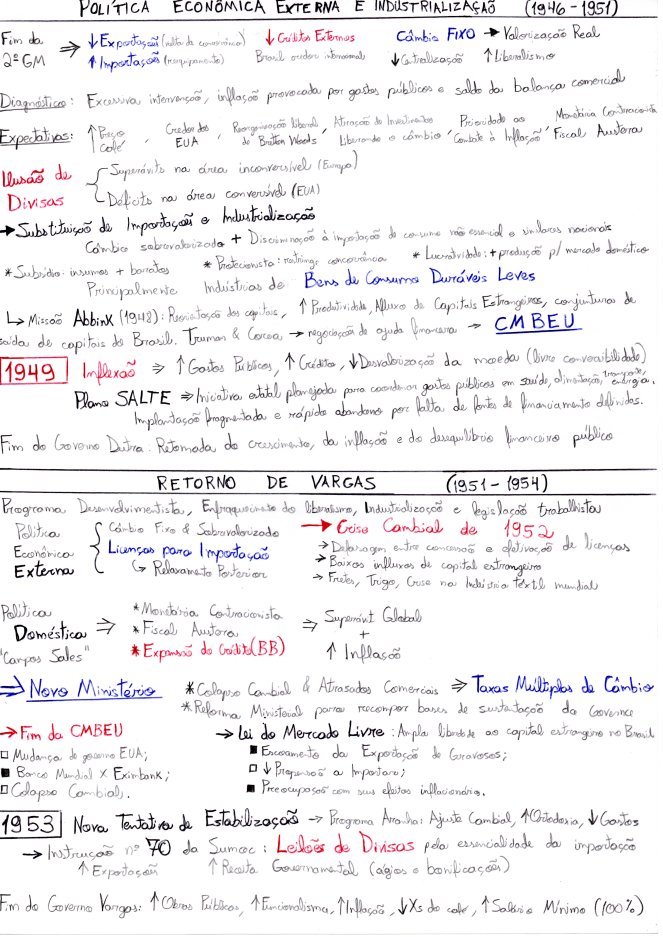 POLÍTICA ECONÔMICA EXTERNA E INDUSTRIALIZAÇÃO (1946-1951)
Fim da 2ª GM ⇒ ↓ Exportação (volta da concorrência) ↓ Créditos Externos Câmbio FIXO → Valorização Real
↑ Importação (reequipamento) Brasil credor internacional ↓ Centralização ↑ Liberalismo
Diagnóstico: Excessiva intervenção, inflação provocada por gastos públicos e saldo da balança comercial
Expectativas: ↑ Preço Café, Credor dos EUA, Reorganização liberal de Bretton Woods, Atração de Investimentos Liberando o câmbio, Prioridade ao Combate à Inflação, Monetária Contracionista Fiscal Austera
Ilusão de Divisas { Superávits na área inconversível (Europa)
Déficits na área conversível (EUA)
→ Substituição de Importações e Industrialização
Câmbio sobrevalorizado + Discriminação à importação de consumo não essencial e similares nacionais
* Subsídio: insumos + baratos * Protecionista: restringe concorrência * Lucratividade: + produção p/ mercado doméstico
Principalmente Indústrias de Bens de Consumo Duráveis Leves
↳ Missão Abbink (1948): Repatriação dos capitais, ↑ Produtividade, Afluxo de Capitais Estrangeiros, conjuntura de
saída de capitais do Brasil. Truman & Coreia → negociação de ajuda financeira → CMBEU
1949 Inflexão ⇒ ↑ Gastos Públicos, ↑ Crédito, ↓ Desvalorização da moeda (livre conversibilidade)
Plano SALTE ⇒ Iniciativa estatal planejada para coordenar gastos públicos em saúde, alimentação, transporte, energia.
Implantação fragmentada e rápido abandono por falta de fontes de financiamento definidas.
Fim do Governo Dutra: Retomada do crescimento, da inflação e do desequilíbrio financeiro público
RETORNO DE VARGAS (1951-1954)
Programa Desenvolvimentista, Enfraquecimento do liberalismo, Industrialização e legislação trabalhista
Política Econômica Externa { Câmbio Fixo & Sobrevalorizado
Licenças para Importação
↳ Relaxamento Posterior
→ Crise Cambial de 1952
→ Defasagem entre concessão e efetivação de licenças
→ Baixos influxos de capital estrangeiro
→ Fretes, Trigo, Crise na Indústria têxtil mundial
Política Doméstica "Campos Sales" ⇒ * Monetária Contracionista
* Fiscal Austera
* Expansão do Crédito (BB)
⇒ Superávit Global
+
↑ Inflação
⇒ Novo Ministério * Colapso Cambial & Atrasados Comerciais ⇒ Taxas Múltiplas de Câmbio
* Reforma Ministerial para recompor bases de sustentação do Governo
→ Fim da CMBEU
□ Mudança de governo EUA;
■ Banco Mundial X Eximbank;
□ Colapso Cambial.
→ Lei do Mercado Livre: Ampla liberdade ao capital estrangeiro no Brasil
■ Escoamento da Exportação de Gravosos;
□ ↓ Propensão a Importar;
■ Preocupação com seus efeitos inflacionários.
1953 Nova Tentativa de Estabilização → Programa Aranha: Ajuste Cambial, ↑ Ortodoxia, ↓ Gastos
→ Instrução nº 70 da Sumoc: Leilões de Divisas pela essencialidade da importação
↑ Exportação ↑ Receita Governamental (ágios e bonificações)
Fim do Governo Vargas: ↑ Obras Públicas, ↑ Funcionalismo, ↑ Inflação, ↓ Xs do café, ↑ Salário Mínimo (100%)